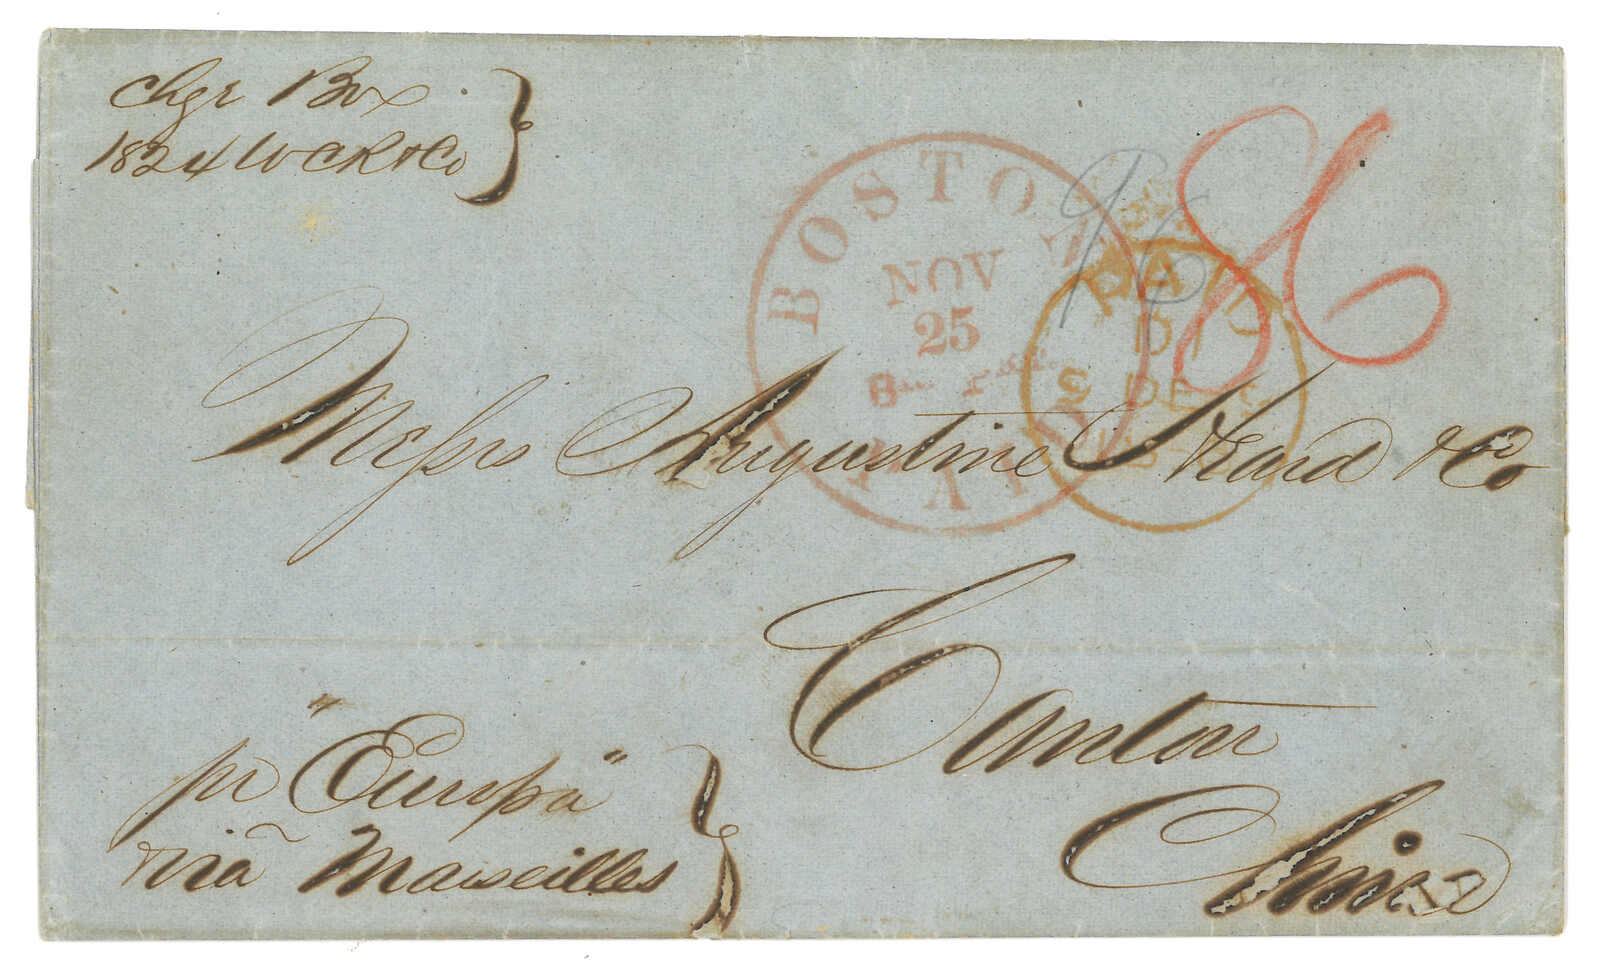 Chge Box
1824 W C R & Co
BOSTON
NOV
25
Br. Pkt.
MAILS
96
86
PAID
DE
Messrs Augustine Heard & Co
Canton
China
pr "Europa"
via Marseilles